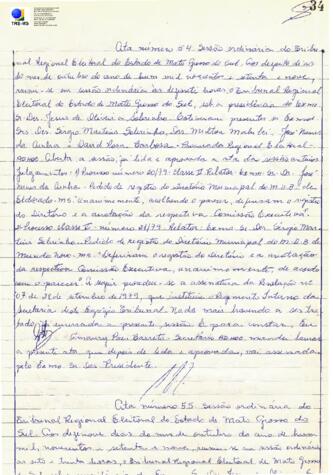 TRE-MS
34
Ata número 54. Sessão ordinária do Tribu-
nal Regional Eleitoral do Estado de Mato Grosso do Sul. Aos dezoito de
do mes de outubro do ano de hum mil novecentos e setenta e nove,
reuniu-se em sessão ordinária às dezessete horas, o Tribunal Regional
Eleitoral do Estado de Mato Grosso do Sul, sob a presidência do Exmo.
Sr. Des. Jesus de Oliveira Sobrinho. Estiveram presentes os Exmos.
Srs. Des. Sérgio Martins Sobrinho, Srs. Milton Malulei, José Nunes
da Cunha e David Rosa Barbosa - Procurador Regional Eleitoral -
ad hoc. Aberta a sessão, foi lida e aprovada a ata da sessão anterior.
Julgamentos: Processo número 20/79. Classe I. Relator - Exmo. Sr. Dr. José
Nunes da Cunha. Pedido de registro do Diretório Municipal do M.D.B. de
Eldorado. MS. Unanimemente, acolhendo o parecer, deferiram o registro
do Diretório e a anotação da respectiva Comissão Executiva.
Processo classe I - número 21/79. Relator - Exmo. Sr. Des. Sérgio Mar-
tins Sobrinho - Pedido de registro de Diretório Municipal do M.D.B. de
Mundo Novo - MS. Deferiram o registro do diretório e a anotação
da respectiva Comissão Executiva, unanimemente, de acordo
com o parecer. A seguir procedeu-se a assinatura da Resolução nº
07 de 28 de setembro de 1979, que instituiu o Regimento Interno da
Secretaria deste Egrégio Tribunal. Nada mais havendo a ser tra-
tado, foi encerrada a presente sessão. E para constar, eu
Barreto, Secretário ad hoc, mandei lavrar
a presente ata que depois de lida e aprovada, vai assinada
pelo Exmo. Sr. Des. Presidente.
Ata número 55. Sessão ordinária do
Tribunal Regional Eleitoral do Estado de Mato Grosso
do Sul. Aos dezenove dias do mes de outubro do ano de hum
mil, novecentos e setenta e nove, reuniu-se em sessão ordinária
às sete e trinta horas, o Tribunal Regional Eleitoral de Mato Grosso